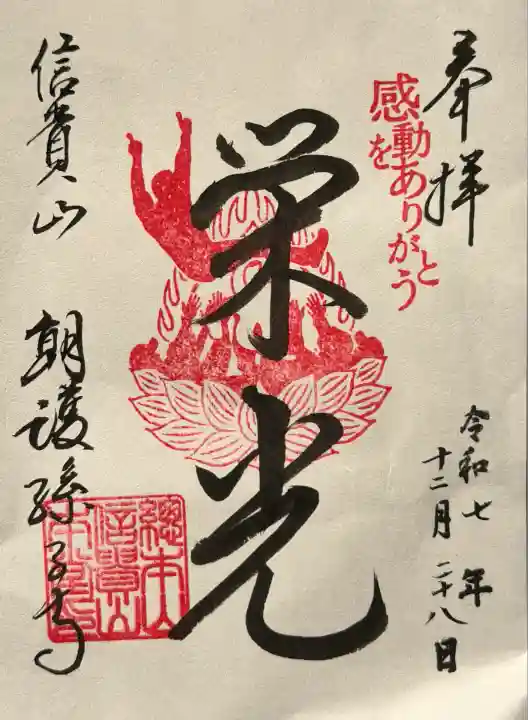 奉拝
感動を
ありがとう
令和七年
十二月二十八日
栄光
信貴山
朝護孫子寺
總本山
信貴山